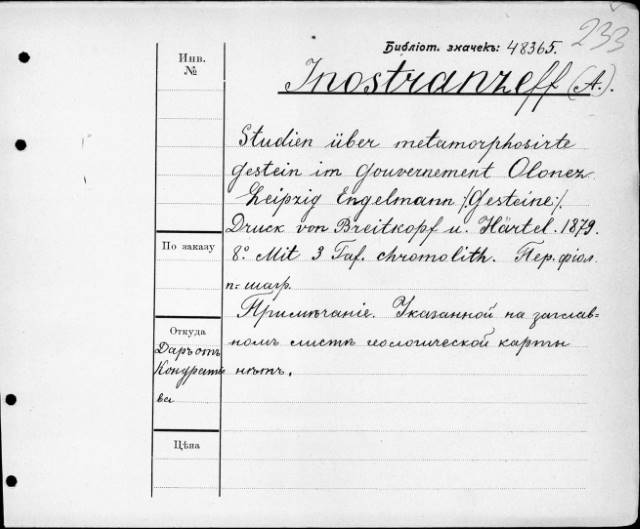 233
Библіот. значекъ: 48365.
Инв.
№
Inostranzeff (A.).
Studien über metamorphosirte
gestein im Gouvernement Olonez
Leipzig Engelmann /:Gesteine:/.
Druck von Breitkopf u. Härtel. 1879.
По заказу
8º. Mit 3 Taf. chromolith. Пер. фіол.
п-шагр.
Примѣчаніе. Указанной на заглав=
Откуда
номъ листѣ геологической карты
Даръ отъ
Кондратье
нѣтъ.
ва
Цѣна